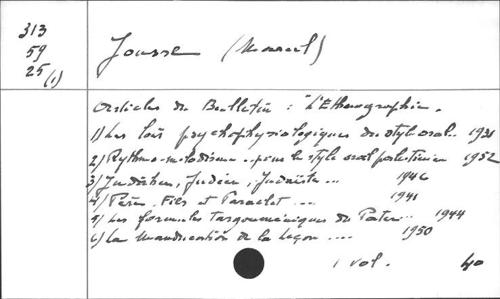 313
59
25 (1)
Jousse (Marcel)
Articles du Bulletin : "L'Ethnographie.
1) Les lois psychophysiologiques du style oral.. 1931
2) Rythmo-mélodisme.. pour le style oral palestinien 1952
3) Judâhen, Judéen, Judaïste ... 1946
4) Père, Fils et Paraclet ... 1941
5) Les formules targoumiques du Pater... 1944
6) La Manducation de la Leçon .... 1950
1 vol. 40